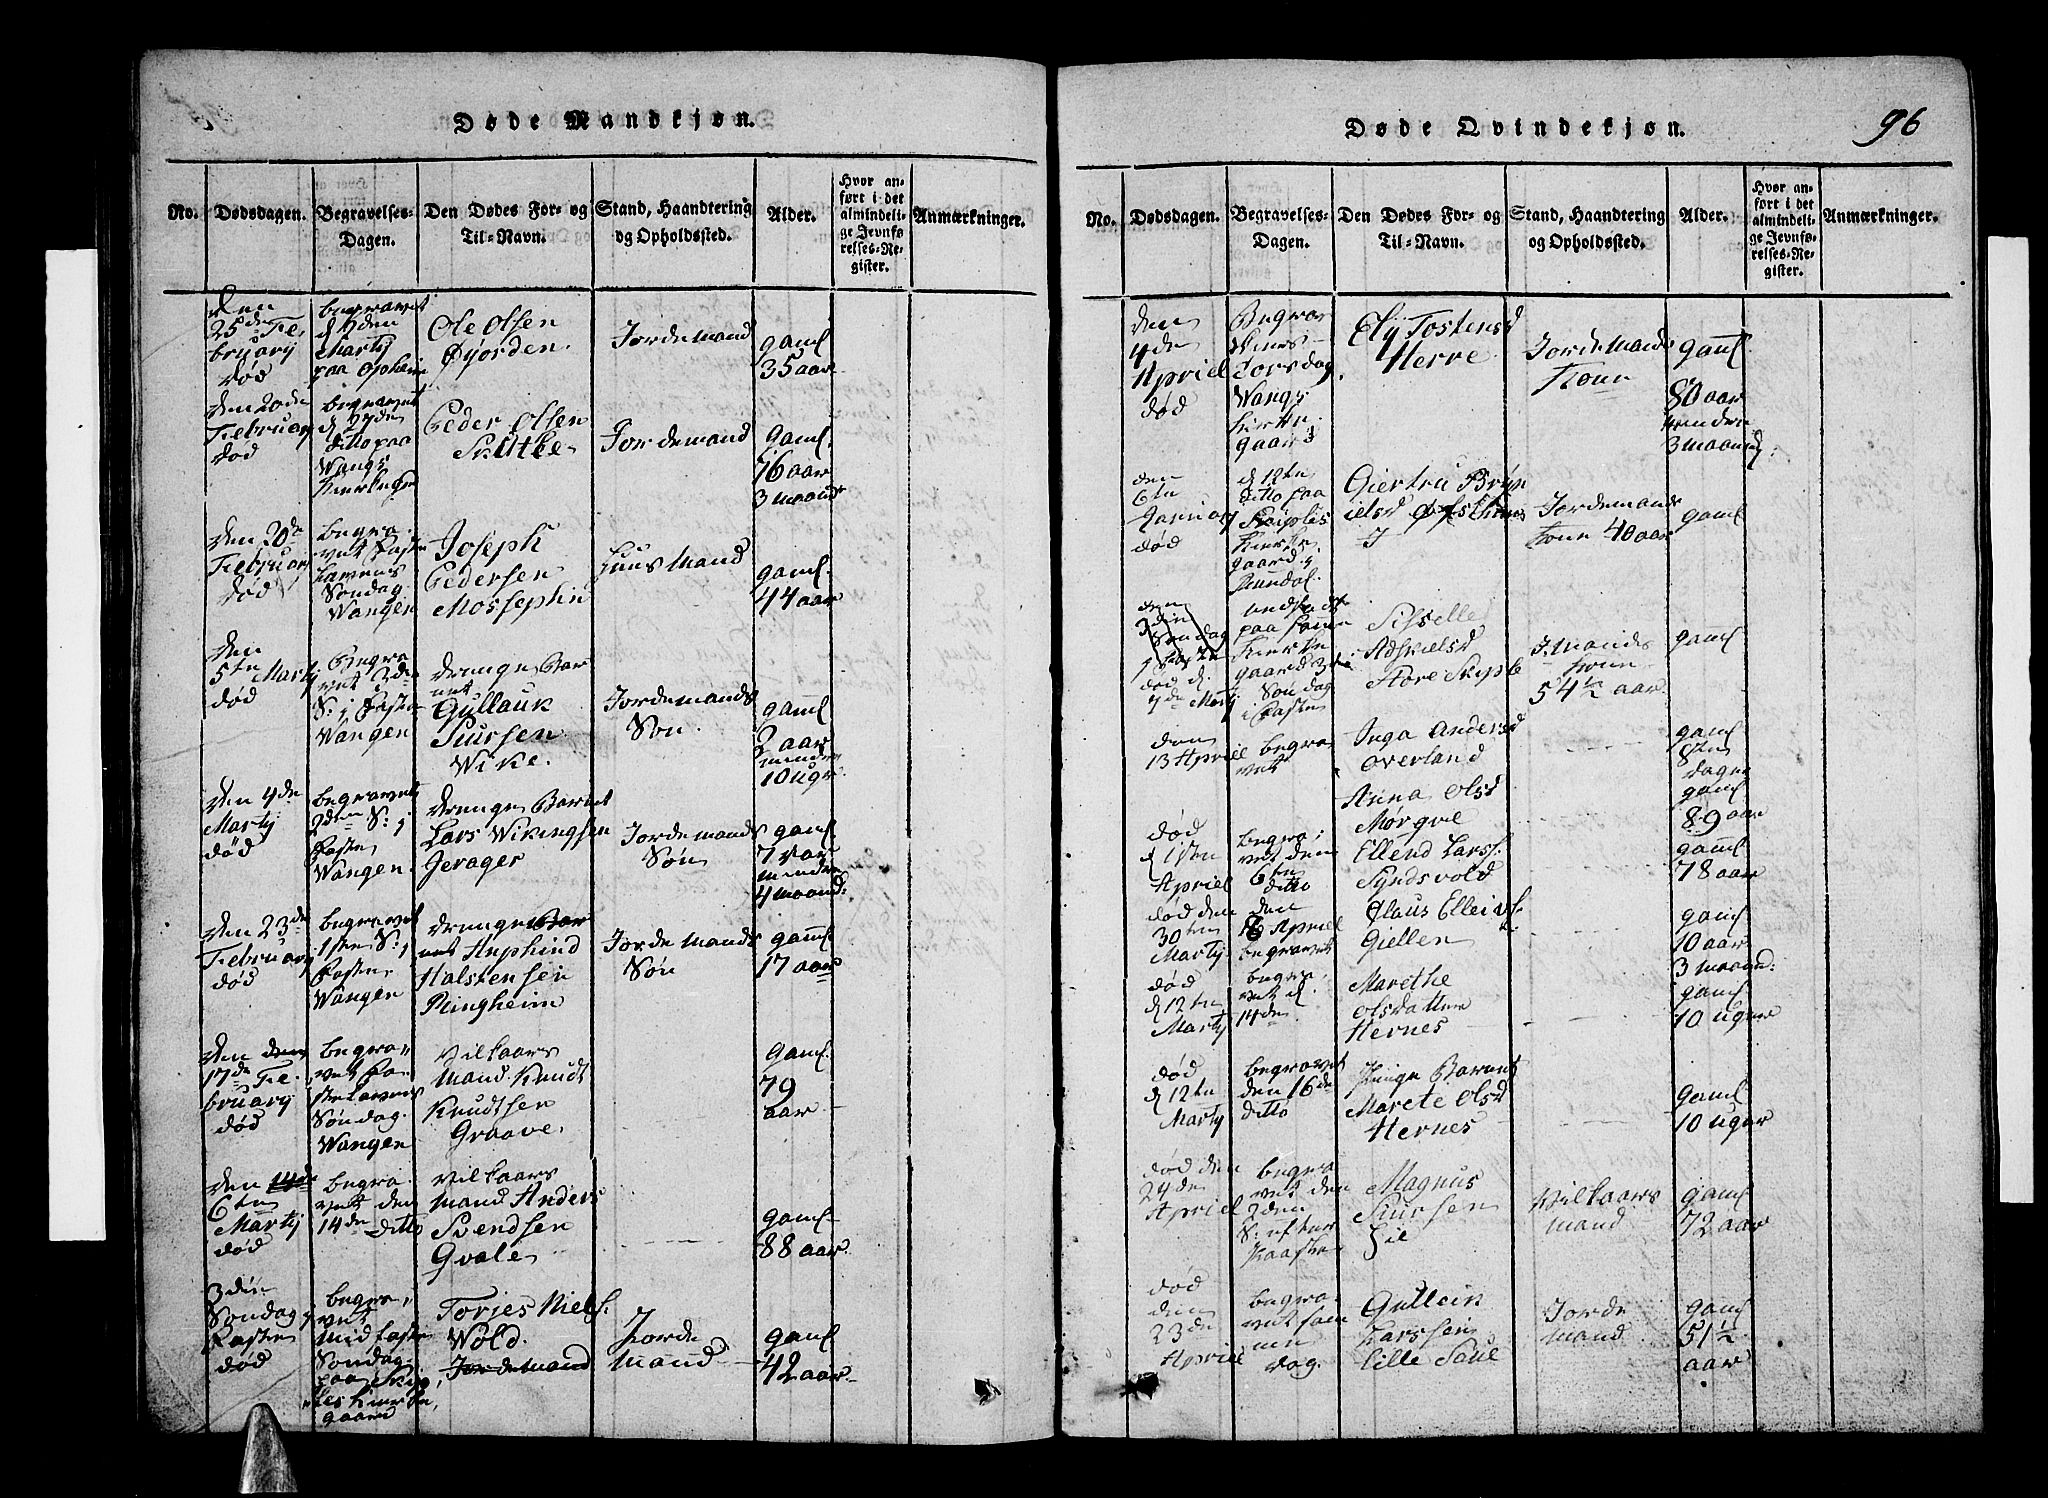 Døde Mandkjøn.
No.
Dødsdagen.
Begravelses-
Dagen.
Den Dødes For- og
Til-Navn.
Stand, Haandtering
og Opholdssted.
Alder.
Hvor an-
ført i det
almindeli-
ge Jevnfø-
relses-Re-
gister.
Anmærkninger.
Den
25de Fe,
bruarij
død
begravet
d 7den
Martij
paa Opheim
Ole Olsen
Øyorden.
Jordemand
gaml
35 aar
Den 20de
Februarij
død
begravet
d 27de
ditto paa
Wangs
Peder Olsen
Skutle
Jordemand
gaml.
76 aar
3 maand
Den 20de
Februarij
død
begra
vet Faste
lavens
Søndag
Wangen
Joseph
Pedersen
Mossephin
Huusmand
gaml.
44 aar
Den
5ten Martij
død
Begra
vet 2den
S: j Faste
Wangen
Drenge Bar
net
Gullauk
Siursen
Wike.
Jordemands
Søn.
gaml
2 aar
mindre
10 uger
Den 4de
Martij
død
begravet
2den S: j
Faste
Wangen.
Drenge Barnet
Lars Wikingsen
Jerager
Jordemands
Søn
gaml
7 aar
mindre
4 maand:
Den 23de
Februarij
død
begravet
1ste S: j
Faste
Wangen
Drenge Bar
net Anphind
Halstensen
Ringheim
Jordemands
Søn
gaml.
17 aar
Den den
17de Fe.
bruarij
død
begra,,
vet Fa-
stelavens
Søndag.
Wangen
Vilkaars
Mand Knudt
Knudtsen
Graave,
gaml.
79
aar
Den 14de
6ten
Martij
død
begra.
vet den
14de ditto
Vilkaars
mand Anders
Svendsen
Gvale
gaml-
88 aar.
3die
Søndag j
Fasten
død
begra,
vet
midfaste
Søndag
paa Skip,
les Kierke,
gaard
Torjes Niels.
Wold.
Jordemand
Jorde
Mand
gaml
42 aar
Døde Qvindekjøn.
96
No.
Dødsdagen.
Begravelses-
Dagen.
Den Dødes For- og
Til-Navn.
Stand, Haandtering
og Opholdssted.
Alder.
Hvor an-
ført i det
almindeli-
ge Jevnfø-
relses-Re-
gister.
Anmærkninger.
Den
4de
Apriel
død
Begra
Torsdag
Wangs
Kirke
gaard
Ely Tostensd
Herre
Jordemands
Kone
gaml
80 aar
mindre
3 maaned
den
6te
Januarij
død
d 12te
ditto paa
Kierke
gaard
Gjertru Bryn
ielsd
Jordemands
kone 40 aar
gaml
den
3die
Søndag
j Fasten
død d.
7de Martij
paa samme
Kierke
gaard 3die
Søndag
i Fasten
Sisselle
Store Skiple
J.mands
kone
54 ½ aar.
gaml
den
13 Apriel
begra
vet
Inga Andersd
Overland
gaml
8ten
dage
Anna Olsd
Mørqve
gaml
89 aar
død
d 1sten
Apriel
begra,
vet den
6ten
ditto
Ellend Larss.
Syndsvold
gaml
78 aar
død den
30ten
Martij
den
8 Apriel
begravet
Claus Elleivs.
Giellen
gaml
10 aar
3 maand:
død
d 12ten
Martij
begra,
vet d.
14de
Marethe
Olsdatter
Hernes
gaml
10 uger
død
d 12ten
Martij
begravet
den 16de
ditto
Piige Barnet
Marete Olsd
Hernes
gaml
10 uger
død den
24de
Apriel
begra
vet den
2den
S: after
Paaske
Magnus
Siursen
Vilkaars
mand
gaml
72 aar
død
den
23de
Apriel
begra
vet sam
me
dag.
Gullein
Larssen
Lille Saue
Jorde
mand
gaml
51 ½
aar